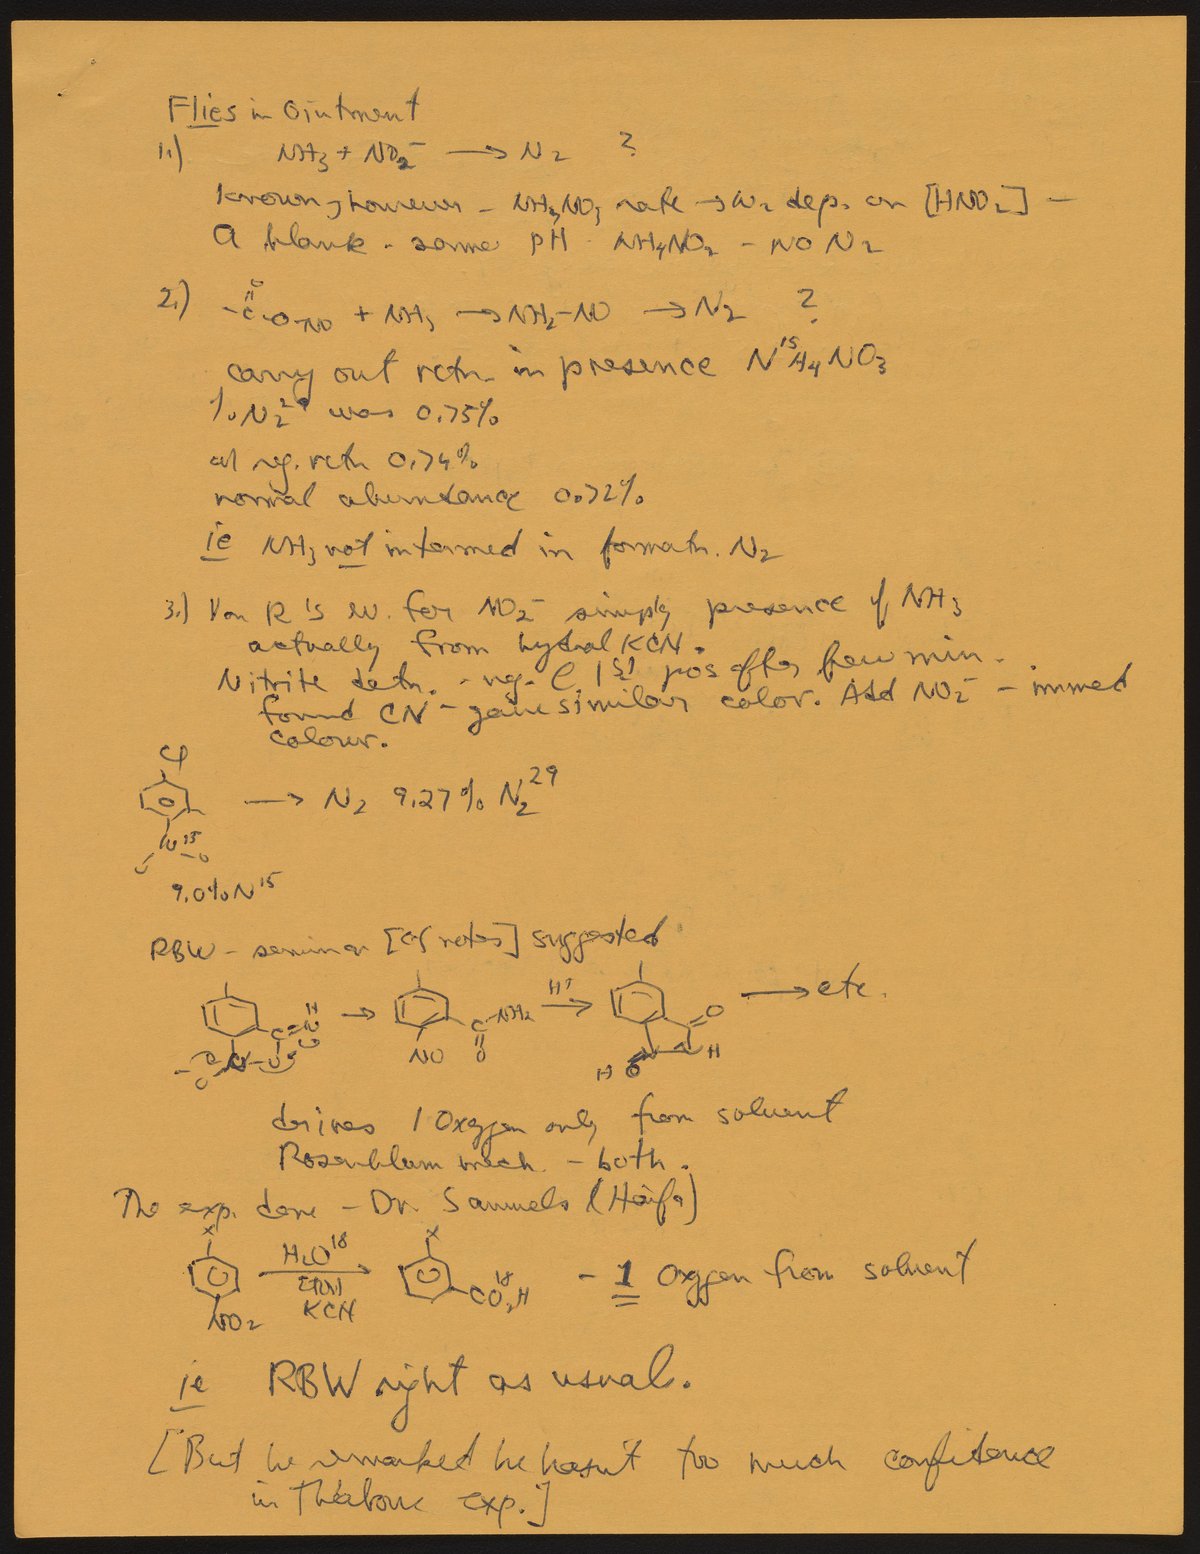 Flies in Ointment
1.) NH3 + NO2- → N2 ?
Known, however - NH4NO3 rate → N2 dep. on [HNO2] -
A blank - same pH - NH4NO2 - NO N2
2.) -C(=O)-O-NO + NH3 → NH2-NO → N2 ?
carry out rctn. in presence N15H4NO3
% N2 29 was 0.75%
reg. rctn 0.74%
normal abundance 0.72%
ie NH3 not intermed in formatn. N2
3.) Von R's ev. for NO2- simply presence of NH3
actually from hydrol KCN.
Nitrite detn. - neg. @ 1st pos after few min.
found CN- gave similar color. Add NO2- - immed
colour.
Cl
→ N2 9.27% N2 29
N15
O O
9.0% N15
RBW - seminar [cf notes] suggested
→ NO C NH2 O H+ → O N H HO → etc.
derives 1 Oxygen only from solvent
Rosenblum mech. - both.
The exp. done - Dr. Samuels (Haifa)
X NO2 H2O18 EtOH KCN → X CO2 18 H - 1 Oxygen from solvent
ie RBW right as usual.
[But he remarked he hasn't too much confidence
in the above exp.]